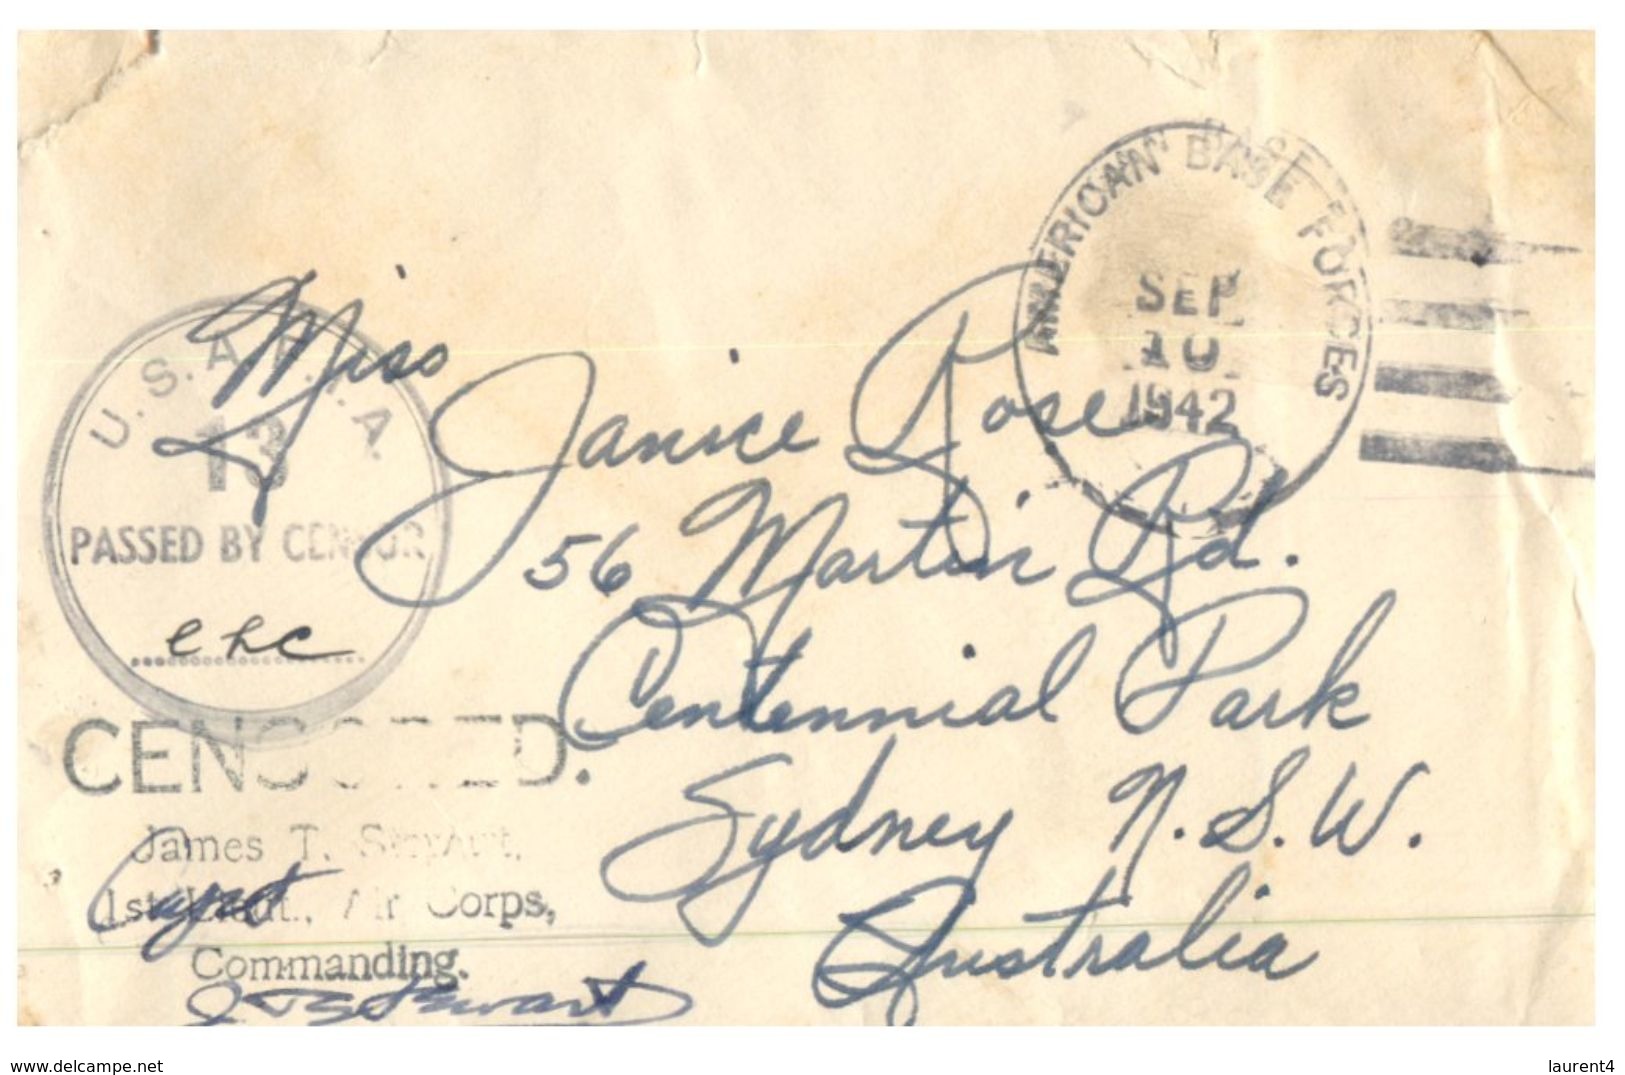 AMERICAN BASE FORCES
SEP
10
1942
U.S.A.F.I.A.
13
PASSED BY CENSOR
chc
Miss Janice Rose
56 Martin Rd.
Centennial Park
Sydney N.S.W.
Australia
CENSORED.
James T. Stewart,
Capt
1st Lieut., Air Corps,
Commanding.
J T Stewart
www.delcampe.net
laurent4